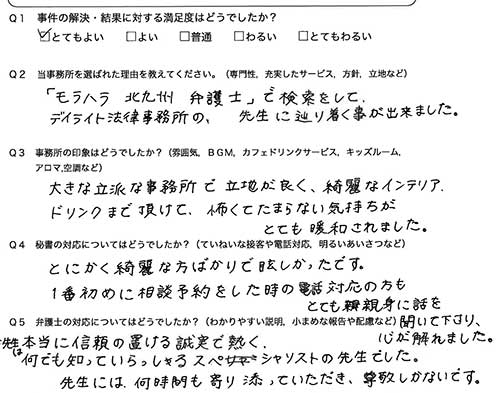 Q1 事件の解決・結果に対する満足度はどうでしたか?
☑とてもよい □よい □普通 □わるい □とてもわるい
Q2 当事務所を選ばれた理由を教えてください。(専門性,充実したサービス,方針,立地など)
「モラハラ 北九州 弁護士」で検索をして、
デイライト法律事務所の、 先生に辿り着く事が出来ました。
Q3 事務所の印象はどうでしたか?(雰囲気,BGM,カフェドリンクサービス,キッズルーム,
アロマ,空調など)
大きな立派な事務所で立地が良く、綺麗なインテリア、
ドリンクまで頂けて、怖くてたまらない気持ちが
とても 暖和されました。
Q4 秘書の対応についてはどうでしたか?(ていねいな接客や電話対応,明るいあいさつなど)
とにかく綺麗な方ばかりで眩しかったです。
1番初めに相談予約をした時の電話対応の方も
とても親身に話を
Q5 弁護士の対応についてはどうでしたか?(わかりやすい説明,小まめな報告や配慮など)
聞いて下さり、
心が解れました。
先生は本当に信頼の置ける誠実で熱く、
何でも知っていらっしゃるスペシャリストの先生でした。
先生には、何時間も寄り添っていただき、尊敬しかないです。